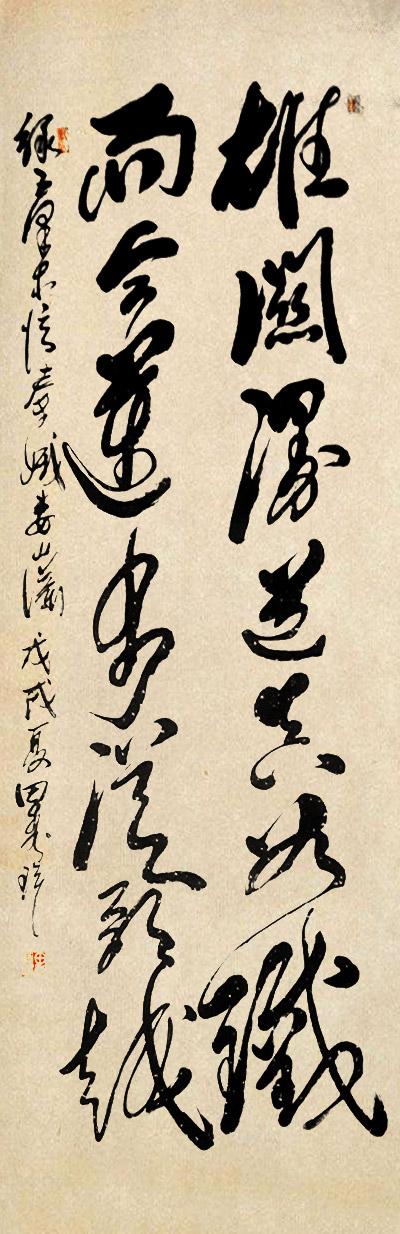 雄關漫道真如鐵
而今邁步從頭越
録毛澤東憶秦娥婁山關戊戌夏田